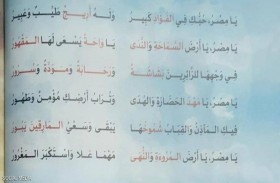 يَا مِصْرُ، حُبُّكِ فِي الْفُؤَادِ كَبِيرُ وَلَهُ أَرِيجٌ طَيِّبٌ وَعَبِيرُ
يَا مِصْرُ، يَا أَرْضَ السَّمَاحَةِ وَالنَّدَى يَا وَاحَةً يَسْعَى لَهَا الْمَقْهُورُ
فِي وَجْهِهَا لِلزَّائِرِينَ بَشَاشَةٌ وَرَحَابَةٌ وَمَوَدَّةٌ وَسُرُورُ
يَا مِصْرُ، يَا مَهْدَ الْحَضَارَةِ وَالْهُدَى وَتُرَابُ أَرْضِكِ مُؤْمِنٌ وَطَهُورُ
فِيكِ الْمَآذِنُ وَالْقِبَابُ شُمُوخُهَا يَبْقَى وَسَعْيُ الْمَارِقِينَ يَبُورُ
يَا مِصْرُ، يَا أَرْضَ الْمُرُوءَةِ وَالنُّهَى مَهْمَا عَلَا وَاسْتَكْبَرَ الْمَغْرُورُ